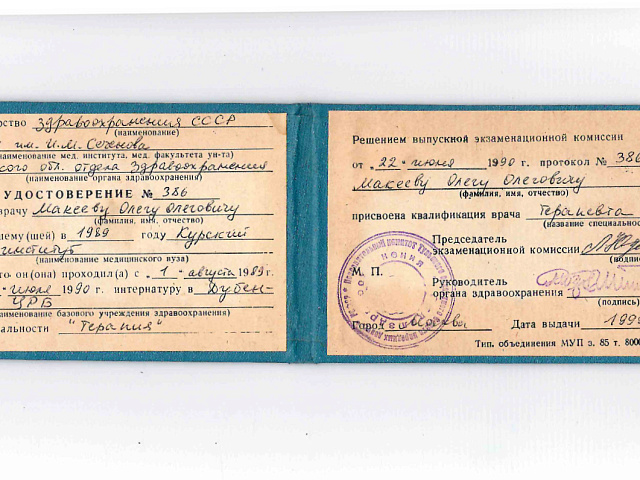 рство Здравоохранения СССР
(наименование)
им. И.М. Сеченова
наименование мед. института, мед. факультета ун-та)
кого обл. отдела Здравоохранения
наименование органа здравоохранения)
УДОСТОВЕРЕНИЕ № 386
врачу Макееву Олегу Олеговичу
(фамилия, имя, отчество)
шему(шей) в 1989 году Курский
институт
наименование медицинского вуза)
то он(она) проходил(а) с „1“ августа 1989 г.
июле 1990 г. интернатуру в Дубен-
ЦРБ
наименование базового учреждения здравоохранения)
альности "Терапия"
Решением выпускной экзаменационной комиссии
от „22“ июня 1990 г. протокол № 386
Макееву Олегу Олеговичу
(фамилия, имя, отчество)
присвоена квалификация врача Терапевта
(название специально
Председатель
экзаменационной комиссии
(подпис
М. П.
Руководитель
органа здравоохранения
(подпись)
Город Москва Дата выдачи 199
Тип. объединения МУП з. 85 т. 8000